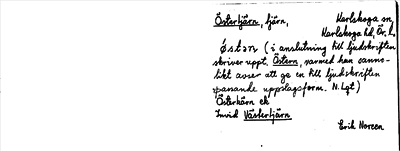 Östertjärn, tjärn, Karlskoga sn,
Karlskoga hd, Ör. l.
östən (i anslutning till ljudskriften
skriver uppt. Östern, varmed han sanno-
likt avser att ge en till ljudskriften
passande uppslagsform. N. Lgt)
Österkärn ek
Invid Västertjärn
Erik Noreen